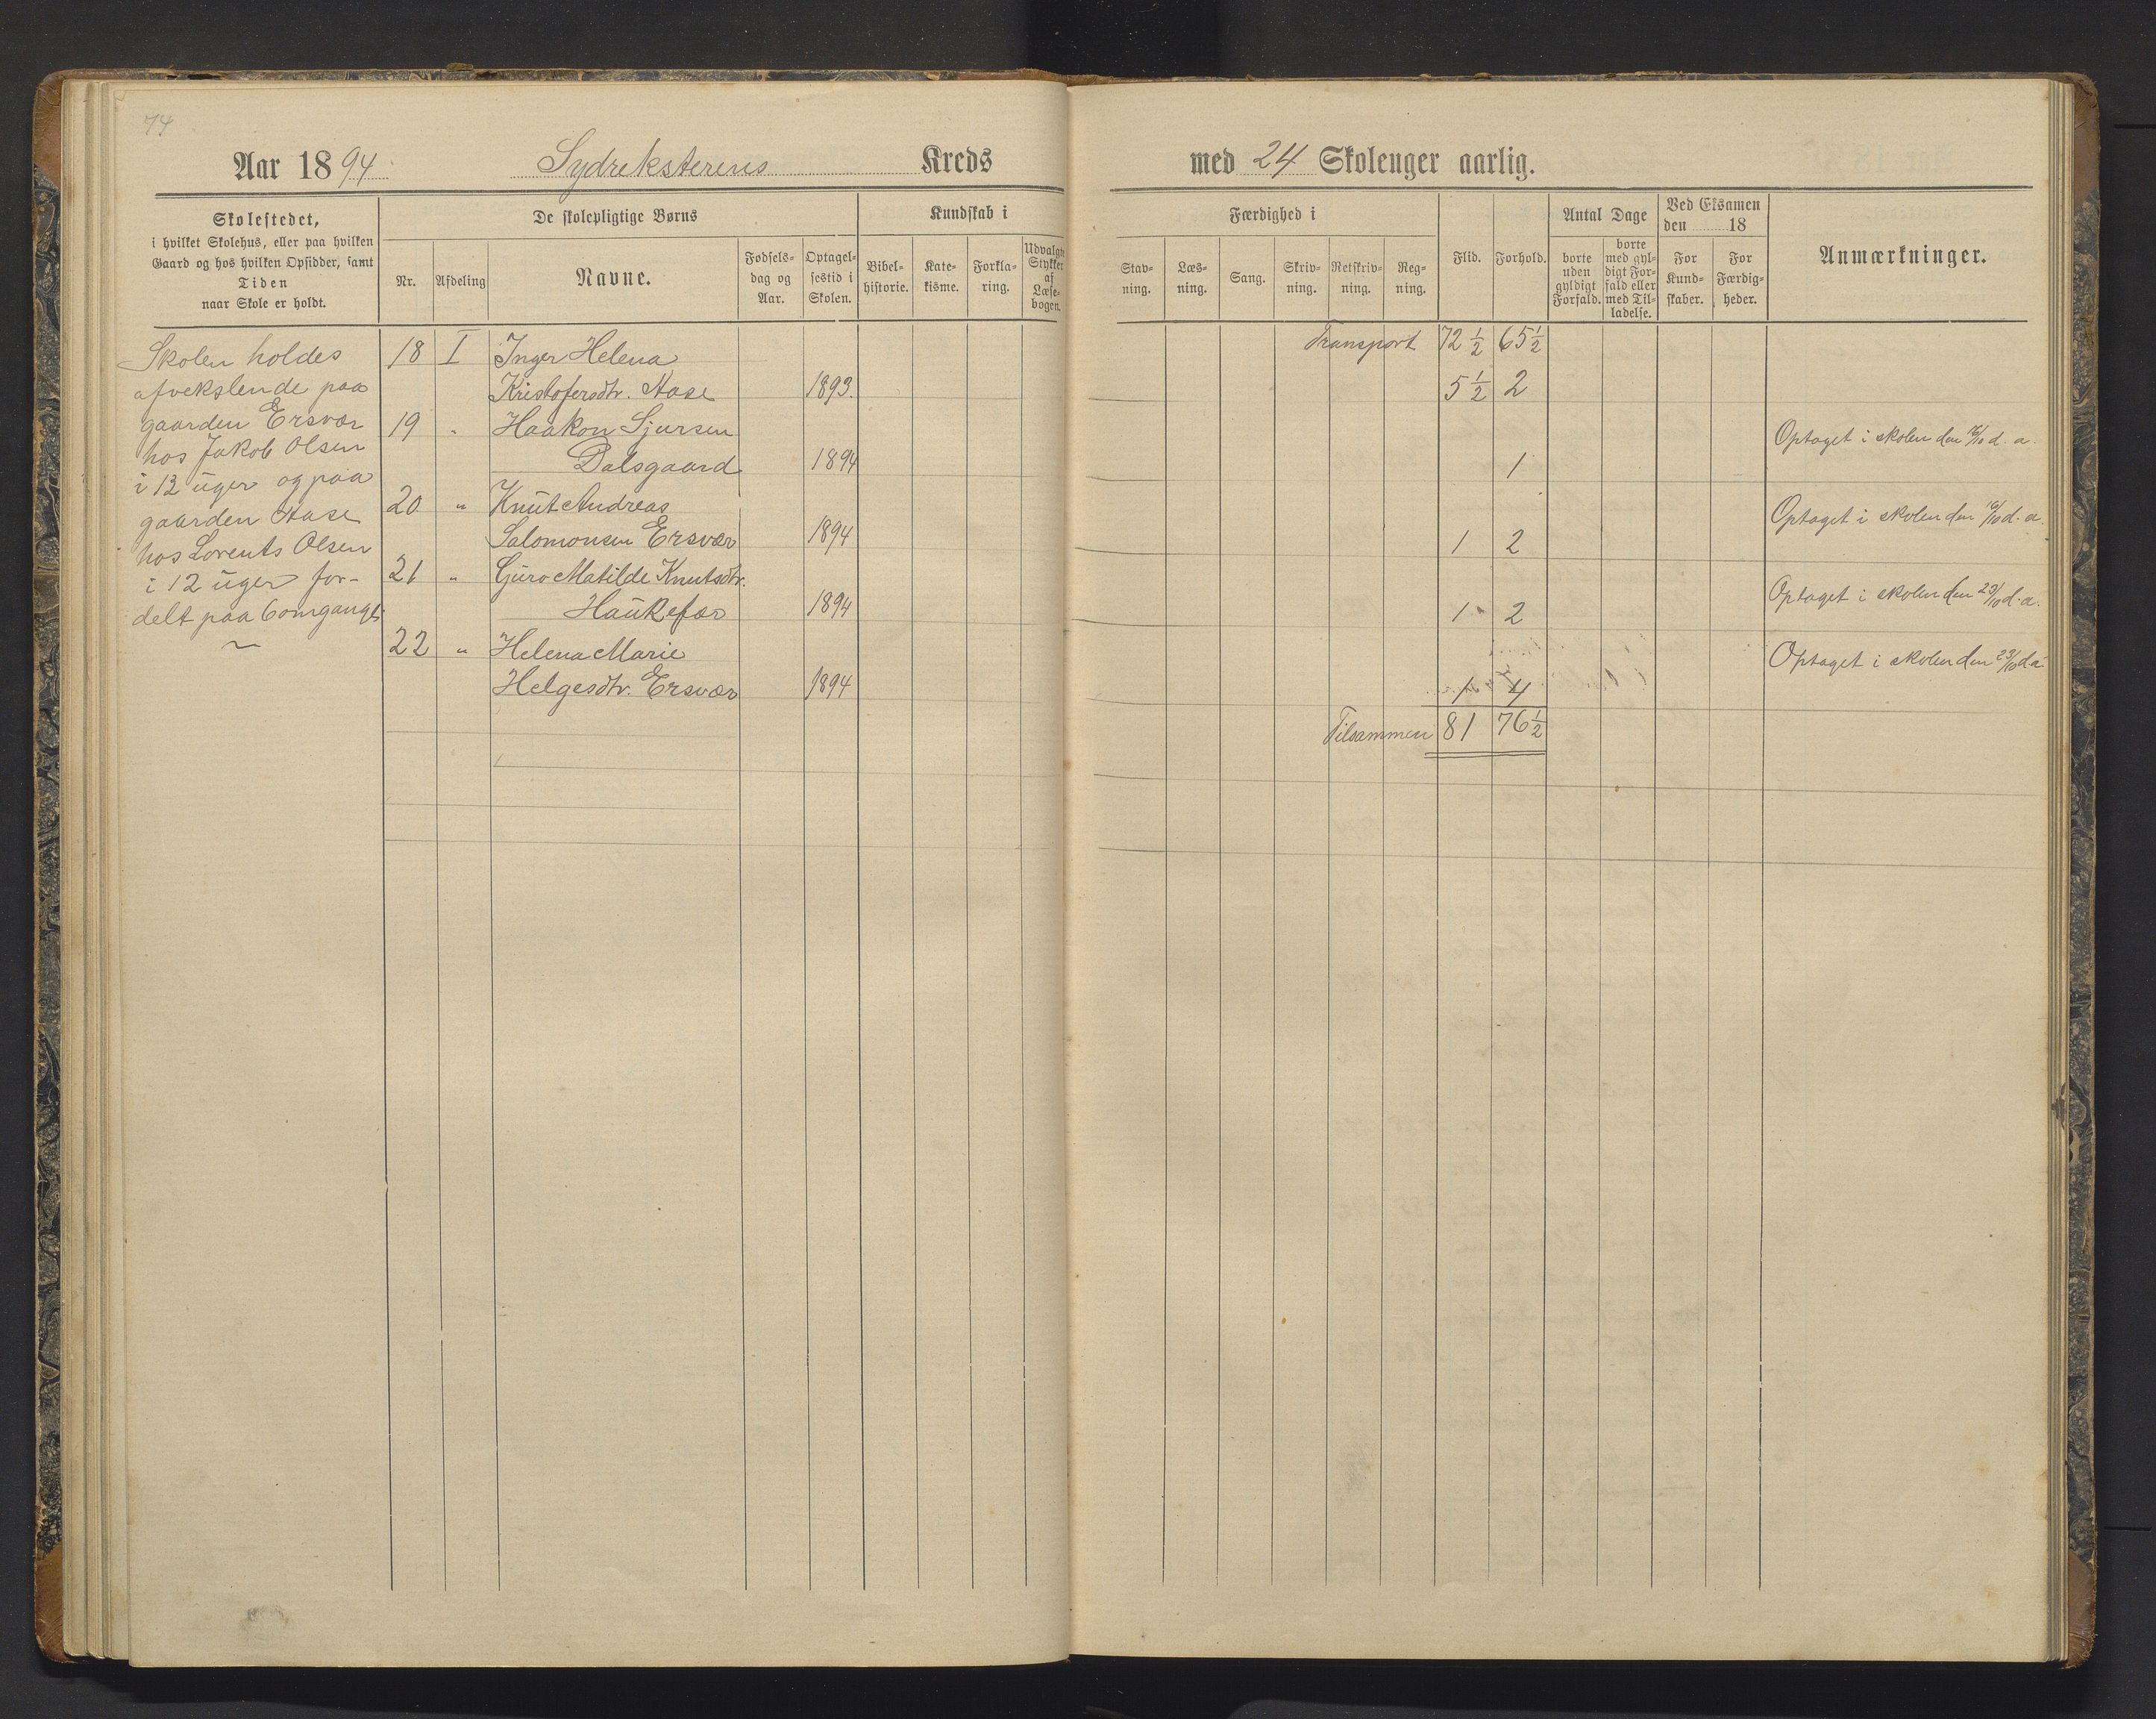 74
Aar 1894 Sydreksterens Kreds med 24 Skoleuger aarlig.
Skolestedet,
i hvilket Skolehus, eller paa hvilken
Gaard og hos hvilken Opsidder, samt
Tiden
naar Skole er holdt.
De skolepligtige Børns
Nr.
Afdeling
Navne.
Fødsels-
dag og
Aar.
Optagel-
sestid i
Skolen.
Kundskab i
Bibel-
historie.
Kate-
kisme.
Forkla-
ring.
Udvalgte
Stykker
af
Læse-
bogen.
Færdighed i
Stav-
ning.
Læs-
ning.
Sang.
Skriv-
ning.
Retskriv-
ning.
Reg-
ning.
Flid.
Forhold.
Antal Dage
borte
uden
gyldigt
Forfald.
borte
med gyl-
digt For-
fald eller
med Til-
ladelse.
Ved Eksamen
den 18
For
Kund-
skaber.
For
Færdig-
heder.
Anmærkninger.
Skolen holdes
afvekslende paa
gaarden Ersvær
hos Jakob Olsen
i 12 uger og paa
gaarden Aase
hos Lorents Olsen
i 12 uger for-
delt paa 6 omgange
Transport 72 1/2 65 1/2
18 I Inger Helena
Kristofersdtr. Aase 1893. 5 1/2 2
19 " Haakon Sjursen
Dalsgaard 1894 1
Optaget i skolen den d. a.
20 " Knut Andreas
Salomonsen Ersvær 1894 1 2
Optaget i skolen den 16/10 d. a.
21 " Guro Matilde Knutsdtr.
Haukefær 1894 1 2
Optaget i skolen den 23/10 d. a.
22 " Helena Marie
Helgesdtr. Ersvær 1894 1 4
Optaget i skolen den 23/10 d a
Tilsammen 81 76 1/2